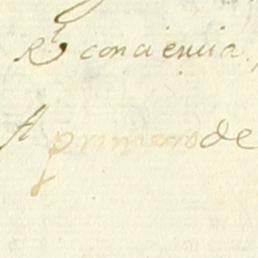 Rl conciencia
A primero de